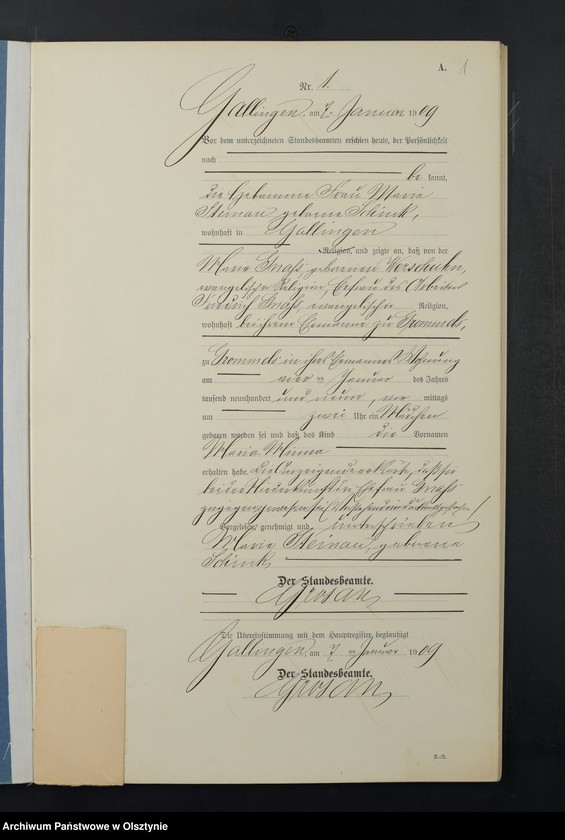 A. 1
Nr. 1.
Gallingen, am 7. Januar 1909
Vor dem unterzeichneten Standesbeamten erschien heute, der Persönlichkeit
nach
bekannt,
die Hebamme Frau Marie
Steinau geborne Schink,
wohnhaft in Gallingen
Religion, und zeigte an, daß von der
Marie geborenen
evangelischer Religion, Ehefrau des Arbeiters
evangelischer Religion,
wohnhaft bei ihrem Ehemanne zu
zu in ihres Ehemannes Wohnung
am vier ten Januar des Jahres
tausend neunhundert und neun, vor mittags
um zwei Uhr ein Mädchen
geboren worden sei und daß das Kind die Vornamen
Maria Minna
erhalten habe. Die Anzeigende erklärte, daß sie
bei der Niederkunft der Ehefrau
zugegen gewesen sei.
Vorgelesen, genehmigt und unterschrieben
Marie Steinau, geborene
Schink
Der Standesbeamte.
Grosan
Die Übereinstimmung mit dem Hauptregister beglaubigt
Gallingen, am 7 ten Januar 1909
Der Standesbeamte.
Grosan
Archiwum Państwowe w Olsztynie